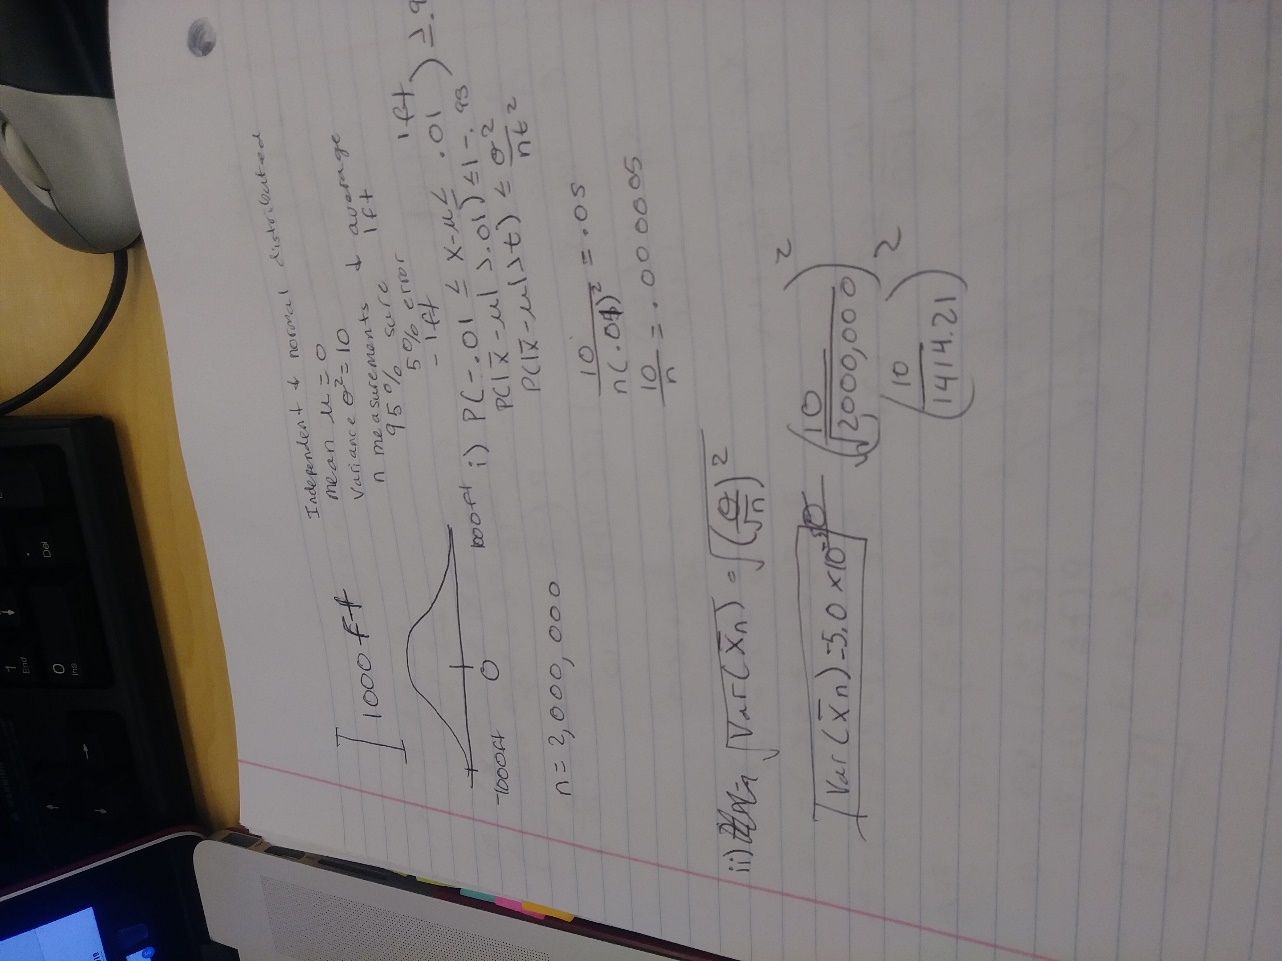 Independent & normal distributed
mean μ = 0
Variance σ² = 10
n measurements & average
95% sure 1ft
5% error
-1ft 1ft
1000ft
-1000ft 0 1000ft
i) P(-.01 ≤ X-μ ≤ .01) ≥ .9
P(|X̄-μ| > .01) ≤ 1-.95
P(|X̄-μ|>t) ≤ σ²/nt²
10/n(.01)² = .05
10/n = .000005
n = 2,000,000
ii) √Var(X̄n) = √(σ/√n)²
Var(X̄n) = 5.0 × 10 (10/√2,000,000)²
(10/1414.21)²
End
Ins
Del
0
1